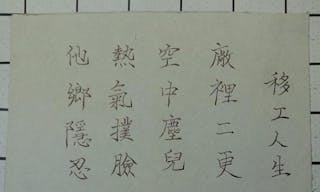 移工人生
廠裡二更
空中塵兒
熱氣撲臉
他鄉隱忍